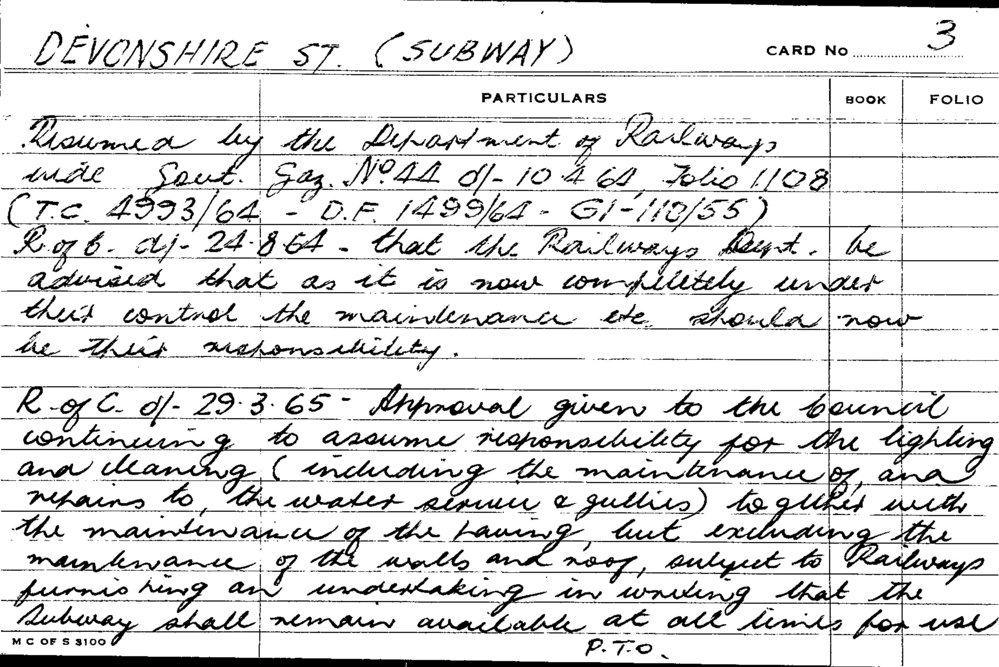 DEVONSHIRE ST. (SUBWAY) CARD No 3
PARTICULARS BOOK FOLIO
Resumed by the Department of Railways
vide Govt. Gaz. No. 44 d/- 10.4.64, Folio 1108
(T.C. 4993/64 - D.F. 1499/64 - G1-110/55)
R of C. d/- 24.8.64 - that the Railways Dept. be
advised that as it is now completely under
their control the maintenance etc. should now
be their responsibility.
R of C. d/- 29.3.65 - Approval given to the Council
continuing to assume responsibility for the lighting
and cleaning (including the maintenance of, and
repairs to, the water service & gullies) together with
the maintenance of the paving, but excluding the
maintenance of the walls and roof, subject to Railways
furnishing an undertaking in writing that the
Subway shall remain available at all times for use
M C OF S 3100 P.T.O.